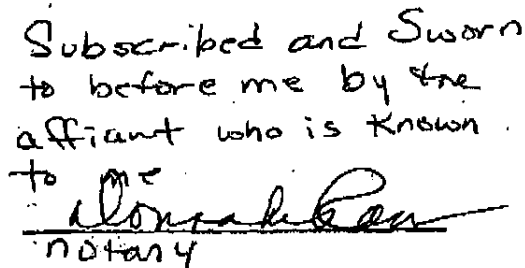 Subscribed and Sworn
to before me by the
affiant who is known
to me
notary